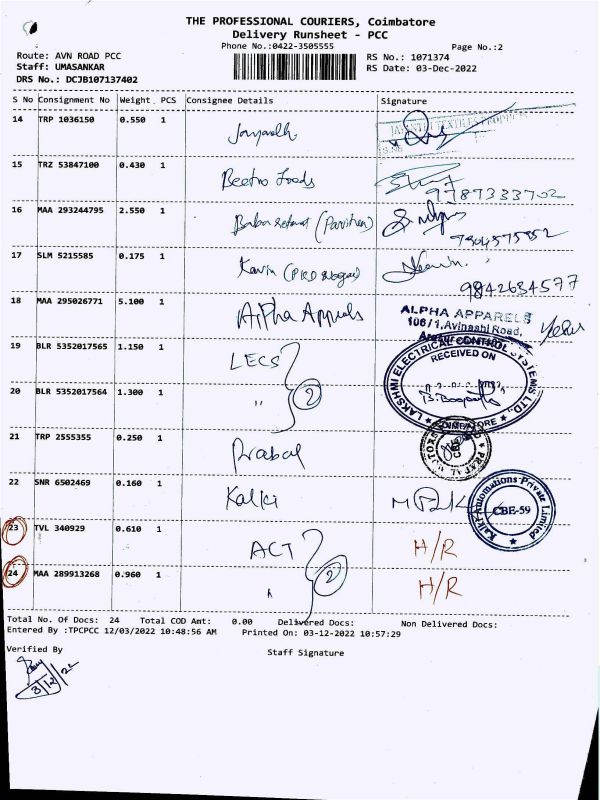 THE PROFESSIONAL COURIERS, Coimbatore
Delivery Runsheet - PCC
Phone No.:0422-3505555
Page No.:2
Route: AVN ROAD PCC
Staff: UMASANKAR
DRS No.: DCJB107137402
RS No.: 1071374
RS Date: 03-Dec-2022
S No Consignment No Weight PCS Consignee Details Signature
14 TRP 1036150 0.550 1
15 TRZ 53847100 0.430 1 Beetro foods
9787333702
16 MAA 293244795 2.550 1
17 SLM 5215585 0.175 1 Kavin
9842634577
18 MAA 295026771 5.100 1 Alpha Apparels
ALPHA APPARELS
106/1, Avinashi Road,
19 BLR 5352017565 1.150 1 LECS
LAKSHMI ELECTRICAL CONTROL SYSTEMS LTD.,
RECEIVED ON
COIMBATORE
20 BLR 5352017564 1.300 1 " 2
21 TRP 2555355 0.250 1 Prabal
CBE
22 SNR 6502469 0.160 1 Kalki
Kalki Automations Private Limited
CBE-59
23 TVL 340929 0.610 1 ACT H/R
24 MAA 289913268 0.960 1 " 2 H/R
Total No. Of Docs: 24 Total COD Amt: 0.00 Delivered Docs: Non Delivered Docs:
Entered By :TPCPCC 12/03/2022 10:48:56 AM Printed On: 03-12-2022 10:57:29
Verified By
Staff Signature
3/12/22